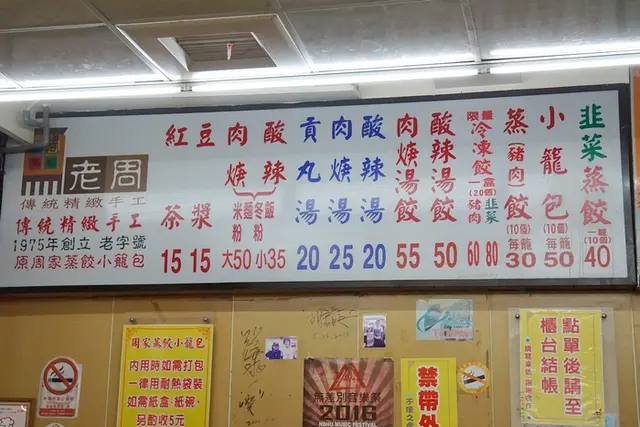 韭菜蒸餃 一籠(10個) 40
小龍包 (10個) 每籠 50
蒸(豬肉)餃 (10個) 每籠 30
限量 冷凍餃 一盒(20個) 韭菜 80 豬肉 60
酸辣湯餃 50
肉焿湯餃 55
酸辣湯 20
肉焿湯 25
貢丸湯 20
酸辣
肉焿
飯
冬粉
麵
米粉
大50 小35
豆漿 15
紅茶 15
老周
傳統精緻手工
傳統精緻手工
1975年創立 老字號
原周家蒸餃小籠包
周家蒸餃小籠包
內用時如需打包
一律用耐熱袋裝
如需紙盒、紙碗、
另酌收5元
無差別音樂祭
2016
禁帶外
點單後請至
櫃台結帳